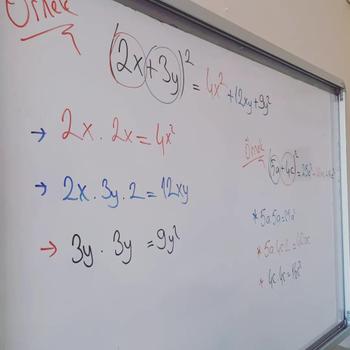 Örnek
(2x+3y)² = 4x² +12xy+9y²
→ 2x . 2x = 4x²
→ 2x . 3y . 2 = 12xy
→ 3y . 3y = 9y²
Örnek
(5a+4c)² = 25a²
* 5a.5a=
* 5a.4c.2 =
* 4c.4c=